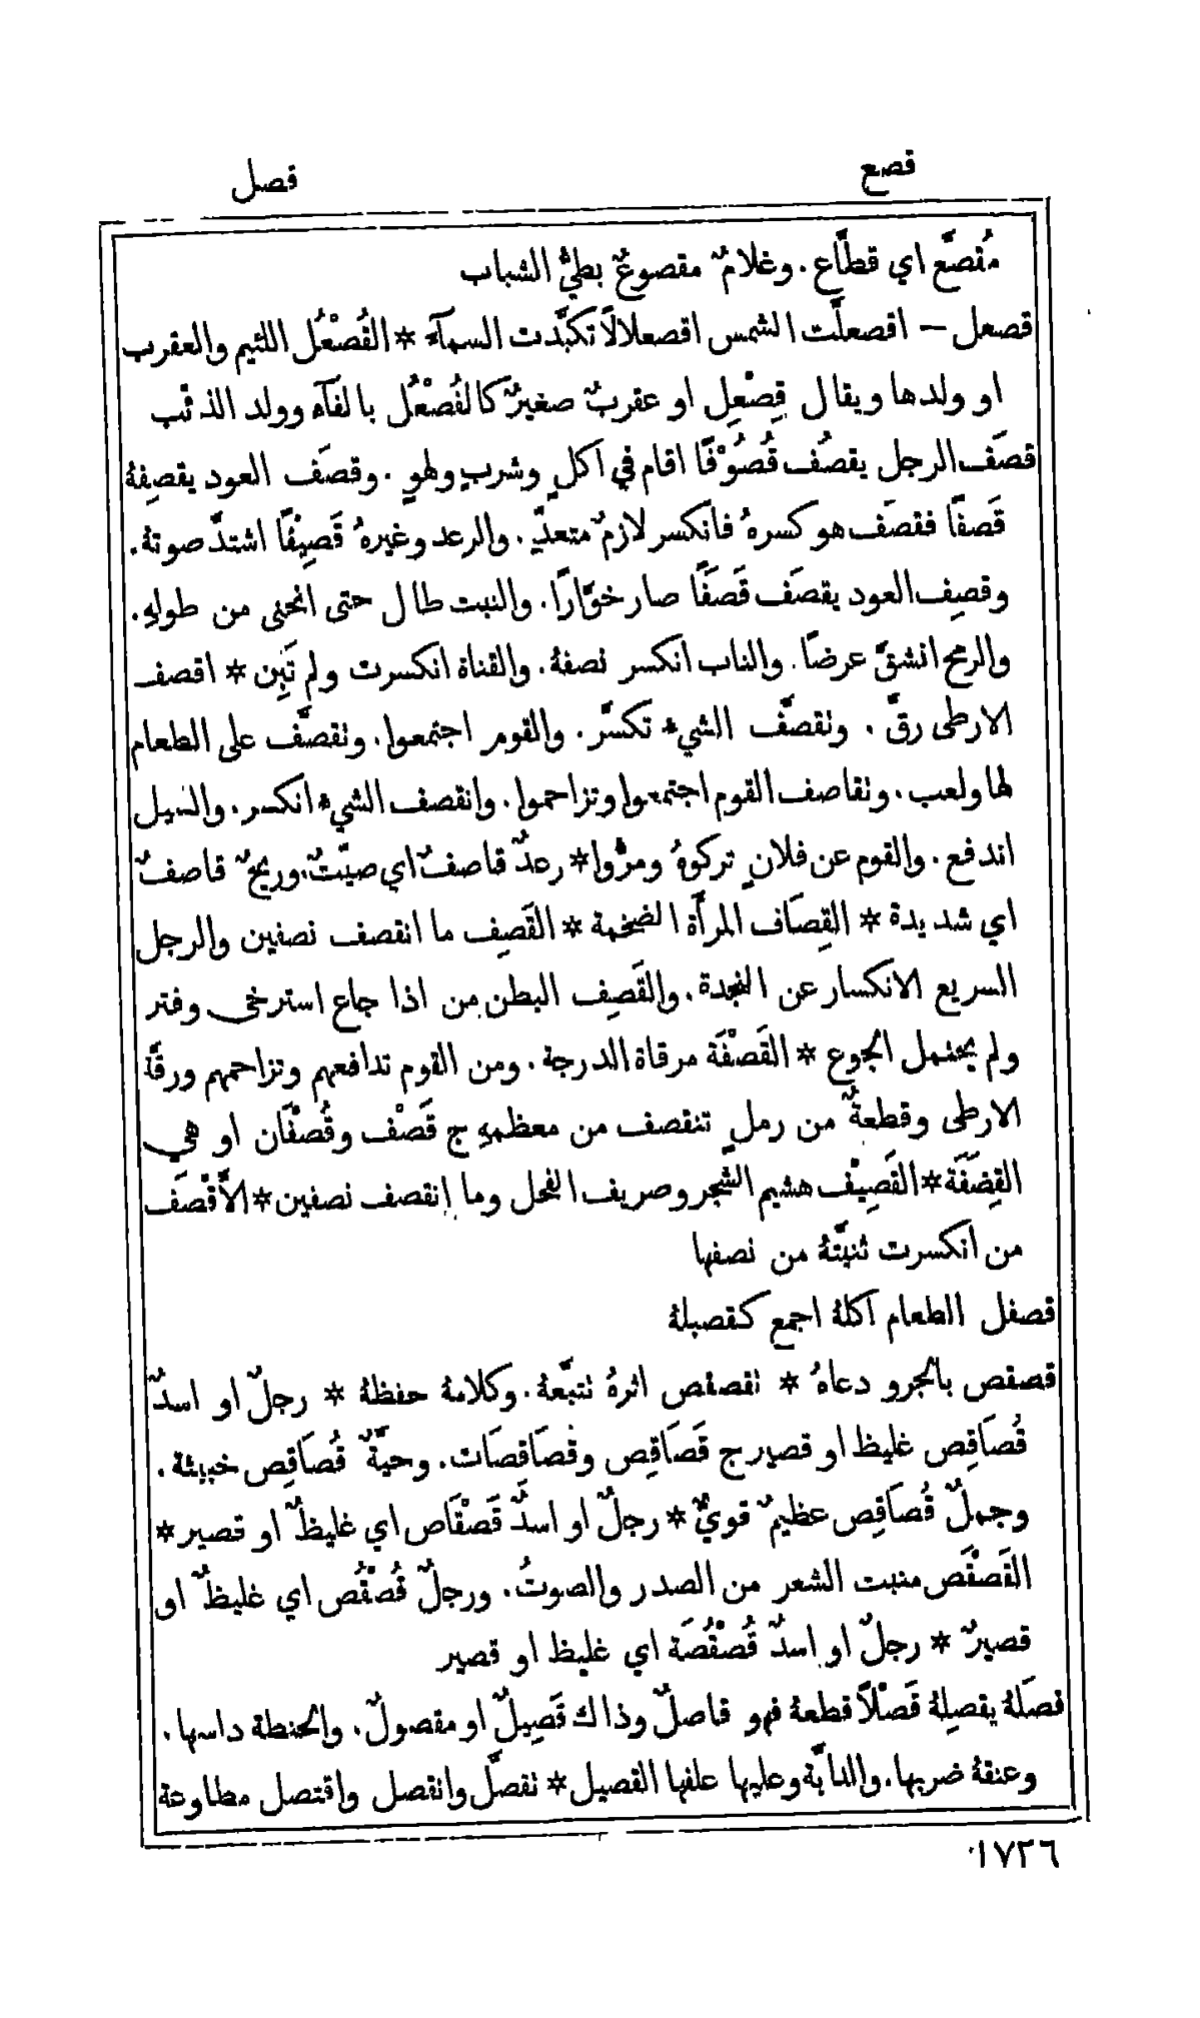 قصع
قصل
مُقصَّع اي قطَّاع. وغلامٌ مقصوعٌ بطيُّ الشباب
قصعل — اقصعلَّت الشمس اقصعلالاً تكبَّدت السمآء * القُصْعُل اللئيم والعقرب
او ولدها ويقال قِصْعِل او عقربٌ صغيرٌ كالفُصْعُل بالفآء وولد الذئب
قصَف الرجل يقصُف قُصُوْفًا اقام في اكلٍ وشربٍ ولهوٍ. وقصَف العود يقصِفهُ
قَصفًا فقصَف هو كسرهُ فانكسر لازمٌ متعدٍّ. والرعد وغيرهُ قَصِيْفًا اشتدَّ صوتهُ.
وقصِف العود يقصَف قَصَفًا صار خوَّارًا. والنبت طال حتى انحنى من طولهِ.
والرمح انشقَّ عرضًا. والناب انكسر نصفهُ. والقناة انكسرت ولم تَبِن * اقصف
الارطى رقَّ. وتقصَّف الشيء تكسَّر. والقوم اجتمعوا. وتقصَّف على الطعام
لها ولعب. وتقاصف القوم اجتمعوا وتزاحموا. وانقصف الشيء انكسر. والسيل
اندفع. والقوم عن فلانٍ تركوهُ ومرُّوا * رعدٌ قاصفٌ اي صيّتٌ. وريحٌ قاصفٌ
اي شديدة * القِصَاف المرأَة الضخمة * القَصِف ما انقصف نصفين والرجل
السريع الانكسار عن النجدة. والقَصِف البطن من اذا جاع استرخى وفتر
ولم يحتمل الجوع * القَصْفَة مرقاة الدرجة. ومن القوم تدافعهم وتزاحمهم ورقَّة
الارطى وقطعةٌ من رملٍ تنقصف من معظمهِ ج قَصْف وقُصْفَان او هي
القِضَفَة * القَصِيْف هشيم الشجر وصريف الفحل وما إنقصف نصفين * الأَقْصَف
من انكسرت ثنيَّتهُ من نصفها
قصفل الطعام اكلهُ اجمع كقصبلهُ
قصقص بالجرو دعاهُ * تقصقص اثرهُ تتبَّعهُ. وكلامهُ حفظهُ * رجلٌ او اسدٌ
قُصَاقِص غليظ او قصير ج قَصَاقِص وقُصَاقِصَات. وحيَّةٌ قُصَاقِص خبيثة.
وجملٌ قُصَاقِص عظيمٌ قويٌّ * رجلٌ او اسدٌ قَصْقَاص اي غليظٌ او قصير *
القَصْقَص منبت الشعر من الصدر والصوتُ. ورجلٌ قُصْقُص اي غليظٌ او
قصيرٌ * رجلٌ او اسدٌ قُصْقُصَة اي غليظ او قصير
قصَلهُ يقصِلهُ قَصْلاً قطعهُ فهو قاصلٌ وذاك قَصِيلٌ او مقصولٌ. والحنطة داسها.
وعنقهُ ضربها. والدابَّة وعليها علفها القصيل * تقصَّل وانقصل واقتصل مطاوعة
١٧٢٦